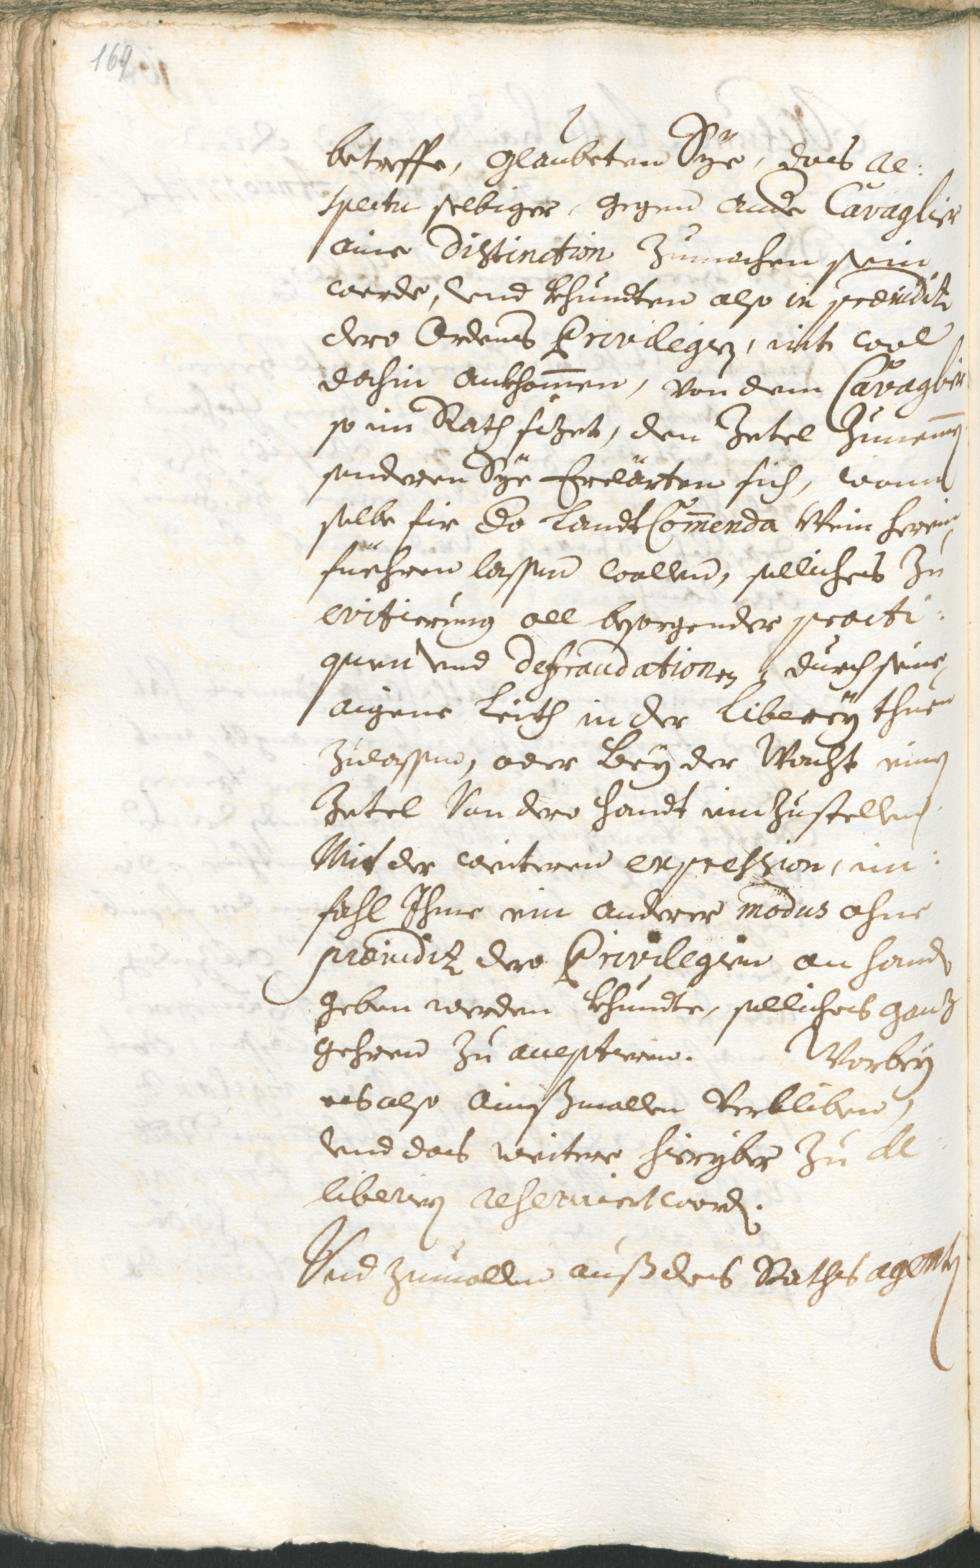 169
betreffe, glaubeten Sÿe, das re:
spectu selbiger, gegen ander Cavaglier
aine Distinction zumachen sein
werde, vnd khundten also in præiuditz
dero Ordens Privilegien, nit wol
dahin ankhom̄en, von dem Cavaglier
so im Rath sizet, den Zetel zunem̄en
sonderen Sÿe Erclärten sich, wann
selbe fir do LandtCom̄enda Wein herein
füehren lassen wollen, sellichs zu
evitierung all besorgender practi:
quen vnd Defraudationen, durch seine
aigene Leith in der Liberey thuen
zulassen, oder beÿ der Wacht einen
Zetel von dero handt einzustellen
Mit der weiteren expression, im
fahl Ihme ein anderer modus ohne
præiuditz dero Privilegien an handt
geben werden khundte, sellichs ganz
gehren zu acceptieren. Worbey
es also ainsmallen verbliben,
vnd das weitere hieryber zu de
liberiern reserviert word.
Vnd zumallen auß des Raths agenten